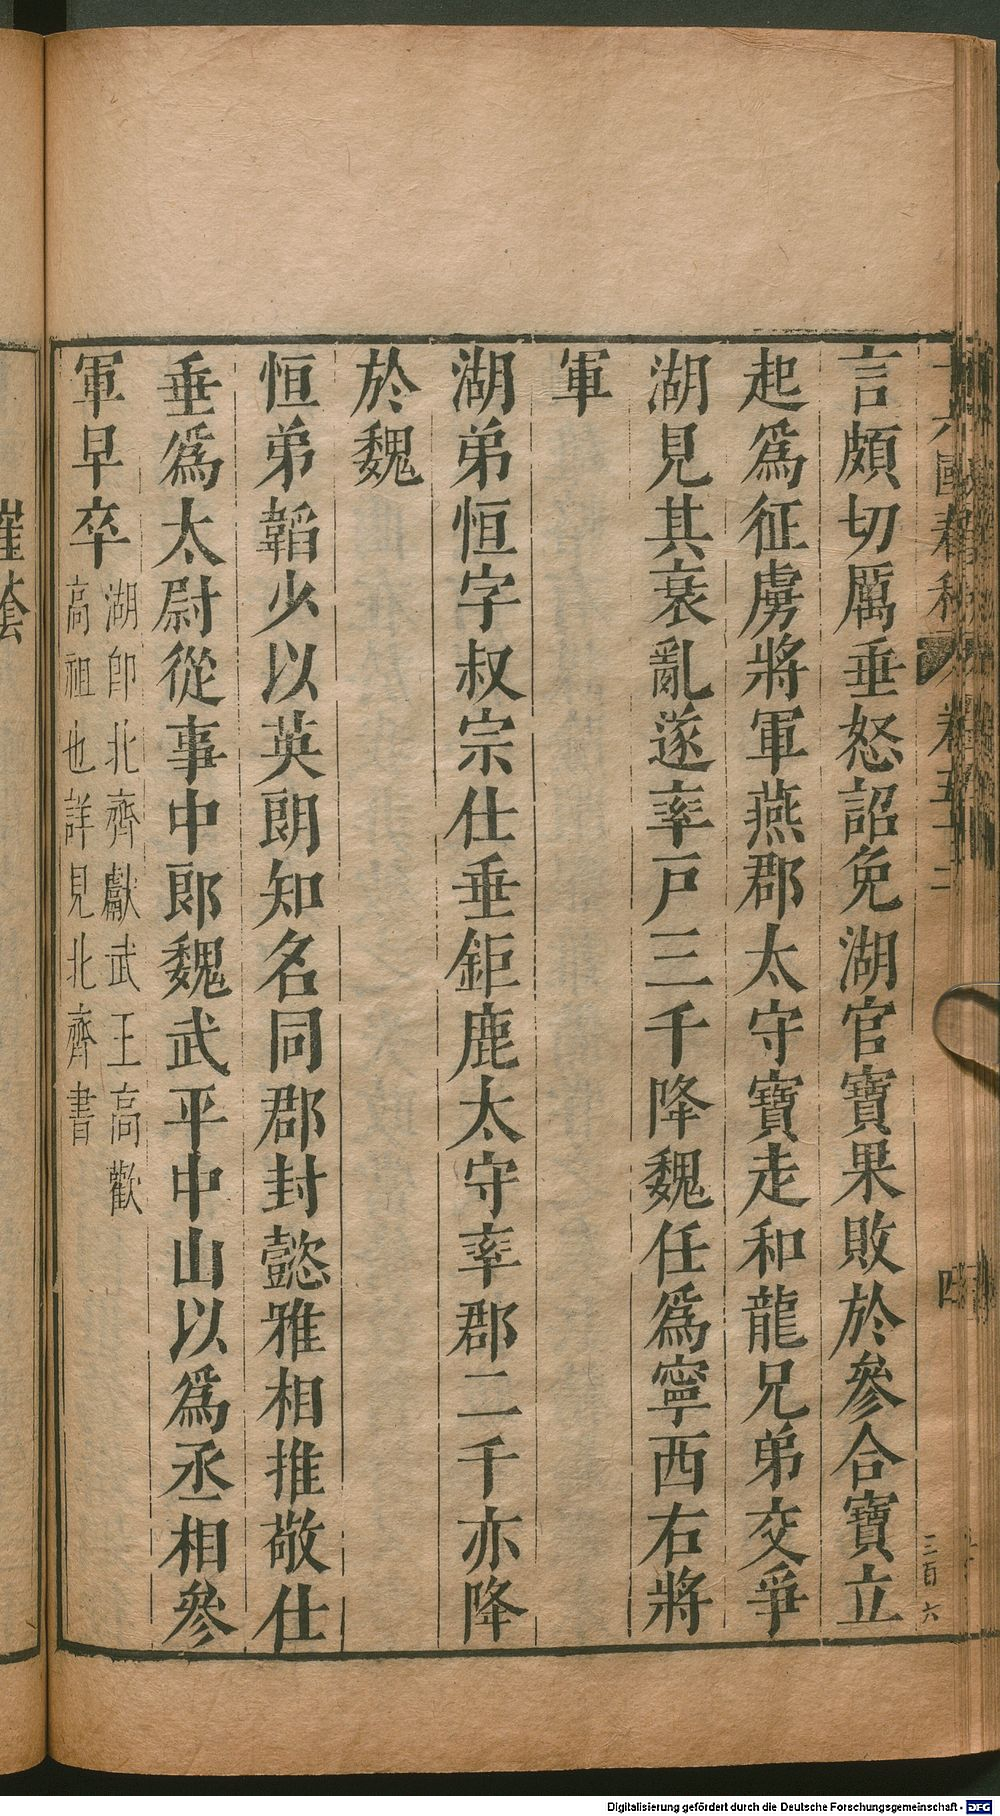 言頗切厲垂怒詔免湖官寶果敗於參合寶立
起爲征虜將軍燕郡太守寶走和龍兄弟交爭
湖見其衰亂遂率戸三千降魏任爲寧西右將
軍
湖弟恒字叔宗仕垂鉅鹿太守率郡二千亦降
於魏
恒弟韜少以英朗知名同郡封懿雅相推敬仕
垂爲太尉從事中郎魏武平中山以爲丞相參
軍早卒
湖卽北齊獻武王高歡
高祖也詳見北齊書
三百六
四
Digitalisierung gefördert durch die Deutsche Forschungsgemeinschaft - DFG